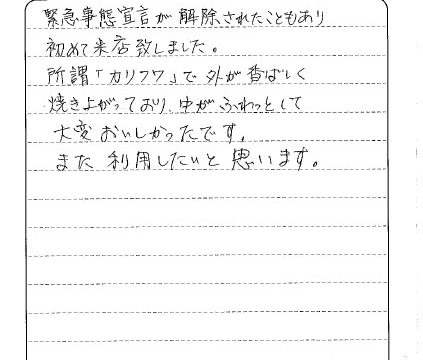 緊急事態宣言が解除されたこともあり
初めて来店致しました。
所謂「カリフワ」で外が香ばしく
焼き上がっており、中がふわっとして
大変おいしかったです。
また利用したいと思います。